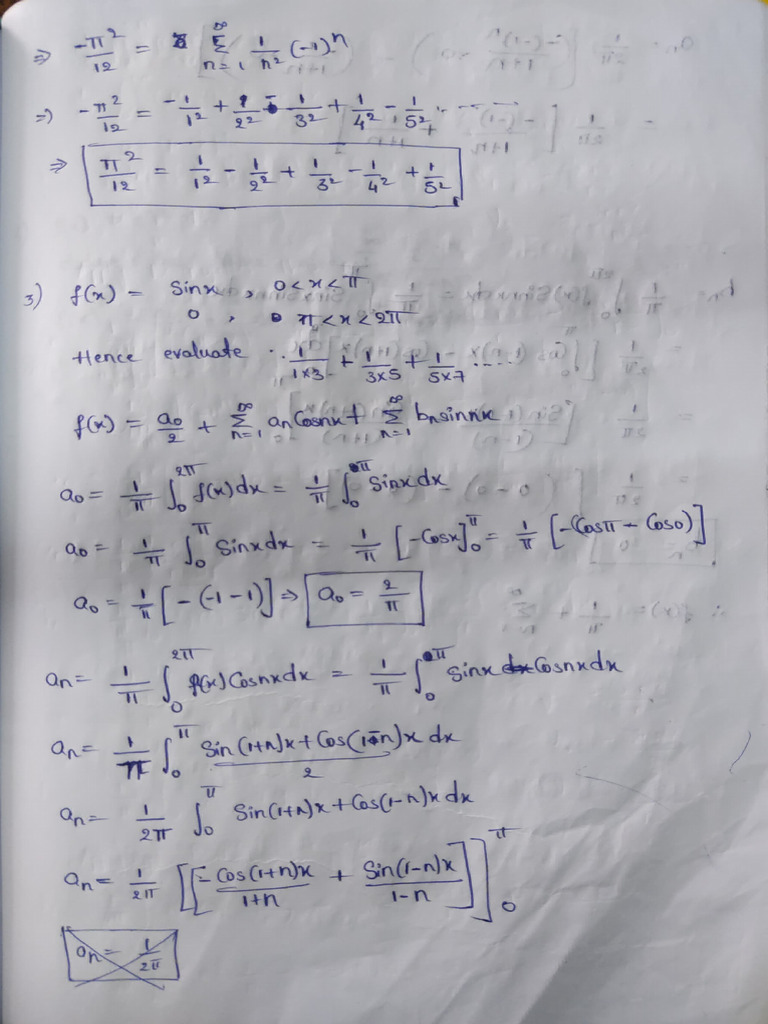 ⇒ -π²/12 = Σ_{n=1}^{∞} 1/n² (-1)ⁿ
⇒ -π²/12 = -1/1² + 1/2² - 1/3² + 1/4² - 1/5² .......
⇒ π²/12 = 1/1² - 1/2² + 1/3² - 1/4² + 1/5²
3) f(x) = Sinx , 0<x<π
0 , π<x<2π
Hence evaluate 1/1×3 + 1/3×5 + 1/5×7 .....
f(x) = a₀/2 + Σ_{n=1}^{∞} aₙ Cosnx + Σ_{n=1}^{∞} bₙ sinnx
a₀ = 1/π ∫₀^{2π} f(x) dx = 1/π ∫₀^{π} Sinx dx
a₀ = 1/π ∫₀^{π} Sinx dx = 1/π [-Cosx]₀^{π} = 1/π [-(Cosπ - Cos0)]
a₀ = 1/π [-(-1-1)] ⇒ a₀ = 2/π
aₙ = 1/π ∫₀^{2π} f(x) Cosnx dx = 1/π ∫₀^{π} Sinx Cosnx dx
aₙ = 1/π ∫₀^{π} Sin(1+n)x + Cos(1-n)x/2 dx
aₙ = 1/2π ∫₀^{π} Sin(1+n)x + Cos(1-n)x dx
aₙ = 1/2π [[-Cos(1+n)x/1+n + Sin(1-n)x/1-n]]₀^{π}
aₙ = 1/2π